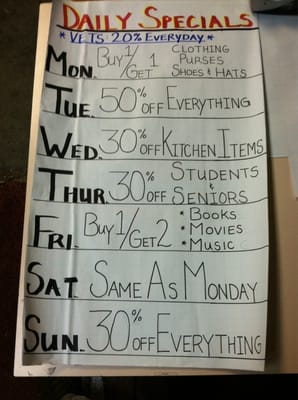 DAILY SPECIALS
* VETS 20% EVERYDAY *
MON. BUY 1/GET 1 CLOTHING
PURSES
SHOES & HATS
TUE. 50% OFF EVERYTHING
WED. 30% OFF KITCHEN ITEMS
THUR. 30% OFF STUDENTS
&
SENIORS
FRI. BUY 1/GET 2 * BOOKS
* MOVIES
* MUSIC
SAT. SAME AS MONDAY
SUN. 30% OFF EVERYTHING